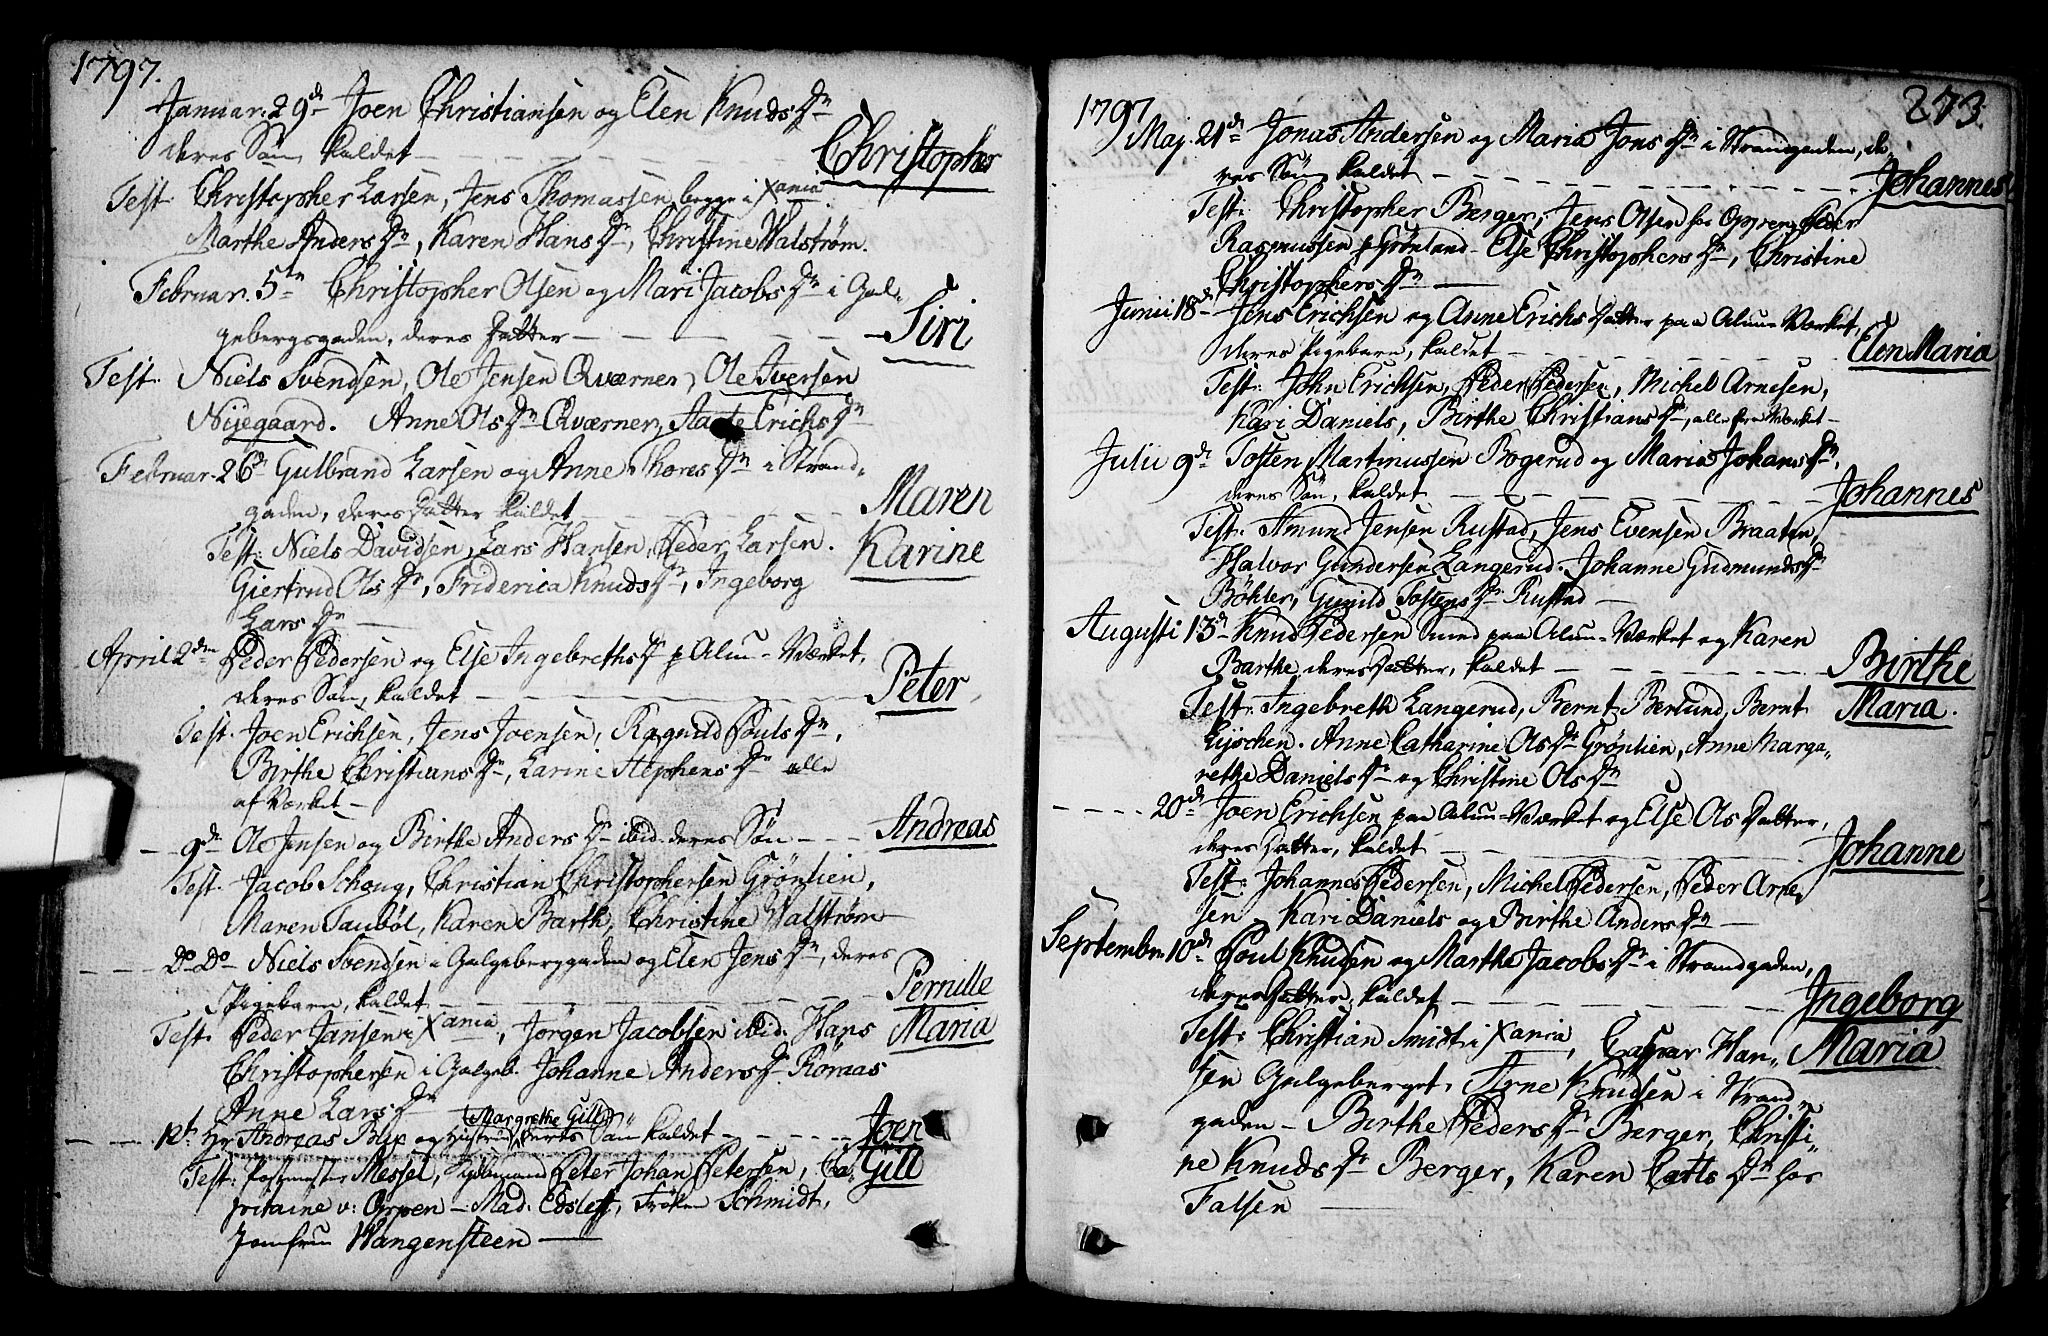 1797.
Januar. 29de Joen Christiansen og Elen Knuds Dr
deres Søn kaldet Christopher
Test. Christopher Larsen, Jens Thomassen begge i Xania
Marthe Anders Dr, Karen Hans Dr, Christine Walstrøm.
Februar. 5te Christopher Olsen og Mari Jacobs Dr i Gal-
gebergsgaden, deres Datter Siri
Test. Niels Svendsen, Ole Jensen Qværner, Ole Iversen
Nijegaard. Anne Ols Dr Qværner, Erichs Dr
Februar. 26de Gulbrand Larsen og Anne Thores Dr i Strand-
gaden, deres Datter kaldet Maren
Test: Niels Davidsen, Lars Hansen, Peder Larsen. Karine
Giertrud Ols Dr, Friderica Knuds Dr, Ingeborg
Lars Dr
April 2den Peder Pedersen og Else Ingebreths Dr p Alun-Værket,
deres Søn, kaldet Peter
Test. Joen Erichsen, Jens Joensen, Ragnild Pouls Dr,
Birthe Christians Dr, Karine Stephens Dr alle
af Værket
9de Ole Jensen og Birthe Anders Dr ibid. deres Søn Andreas
Test. Jacob Schoug, Christian Christophersen Grönlien,
Maren Taubøl, Karen Barth, Christine Walstrøm
Do Do Niels Svendsen i Galgeberggaden og Elen Jens Dr, deres
Pigebarn, kaldet Pernille
Test. Peder Jansen i Xania, Jørgen Jacobsen ibid. Hans Maria
Christophersen i Galgeb. Johanne Anders Dr Römaas
Anne Lars Dr
Margrethe Gill
Hr Andreas Blix og Hustru deres Søn kaldet Joen
Test: Postmester Messel, Peter Johan Petersen, Ca- Gill
pitaine v: Oppen - Mad. Edsleff, Frøken Schmidt,
Jomfru Wangensteen
1797 273.
Maj. 21de Jonas Andersen og Maria Jons Dr i Strandgaden, de-
res Søn kaldet Johannes
Test: Christopher Berger, Jens Olsen hos Oppen, Peder
Rasmussen p Grönland - Else Christophers Dr, Christine
Christophers Dr
Junii 18de Jens Erichsen og Anne Erichs Datter paa Alun-Værket,
deres Pigebarn, kaldet Elen Maria
Test: John Erichsen, Peder Pedersen, Michel Arnesen,
Kari Daniels, Birthe Christians Dr, alle fra Værket
Julii 9de Tosten Martinussen Bogerud og Maria Johans Dr,
deres Søn, kaldet Johannes
Test: Amund Jensen Rustad, Jens Evensen Braaten,
Halvor Gundersen Langerud. Johanne Gudmunds Dr
Böhler, Gunild Tostens Dr Rustad
Augusti 13de Knud Pedersen Smed paa Alun-Værket og Karen
Barthe, deres Datter, kaldet Birthe
Test: Ingebreth Langerud, Bernt Berlund, Bernt Maria.
Anne Catharine Ols Dr Grönlien, Anne Marga-
rethe Daniels Dr og Christine Ols Dr
20de Joen Erichsen paa Alun-Værket og Else Ols Datter,
deres Datter, kaldet Johanne
Test: Johannes Pedersen, Michel Pedersen, Peder Arne-
sen Kari Daniels og Birthe Anders Dr
September 10de Poul Knudsen og Marthe Jacobs Dr i Strandgaden,
deres Datter, kaldet Ingeborg
Test: Christian Smidt i Xania, Caspar Han- Maria
sen Galgeberget, Arne Knudsen i Strand-
gaden - Birthe Peders Dr Berger, Christi-
ne Knuds Dr Berger, Karen Dr hos
Falsen